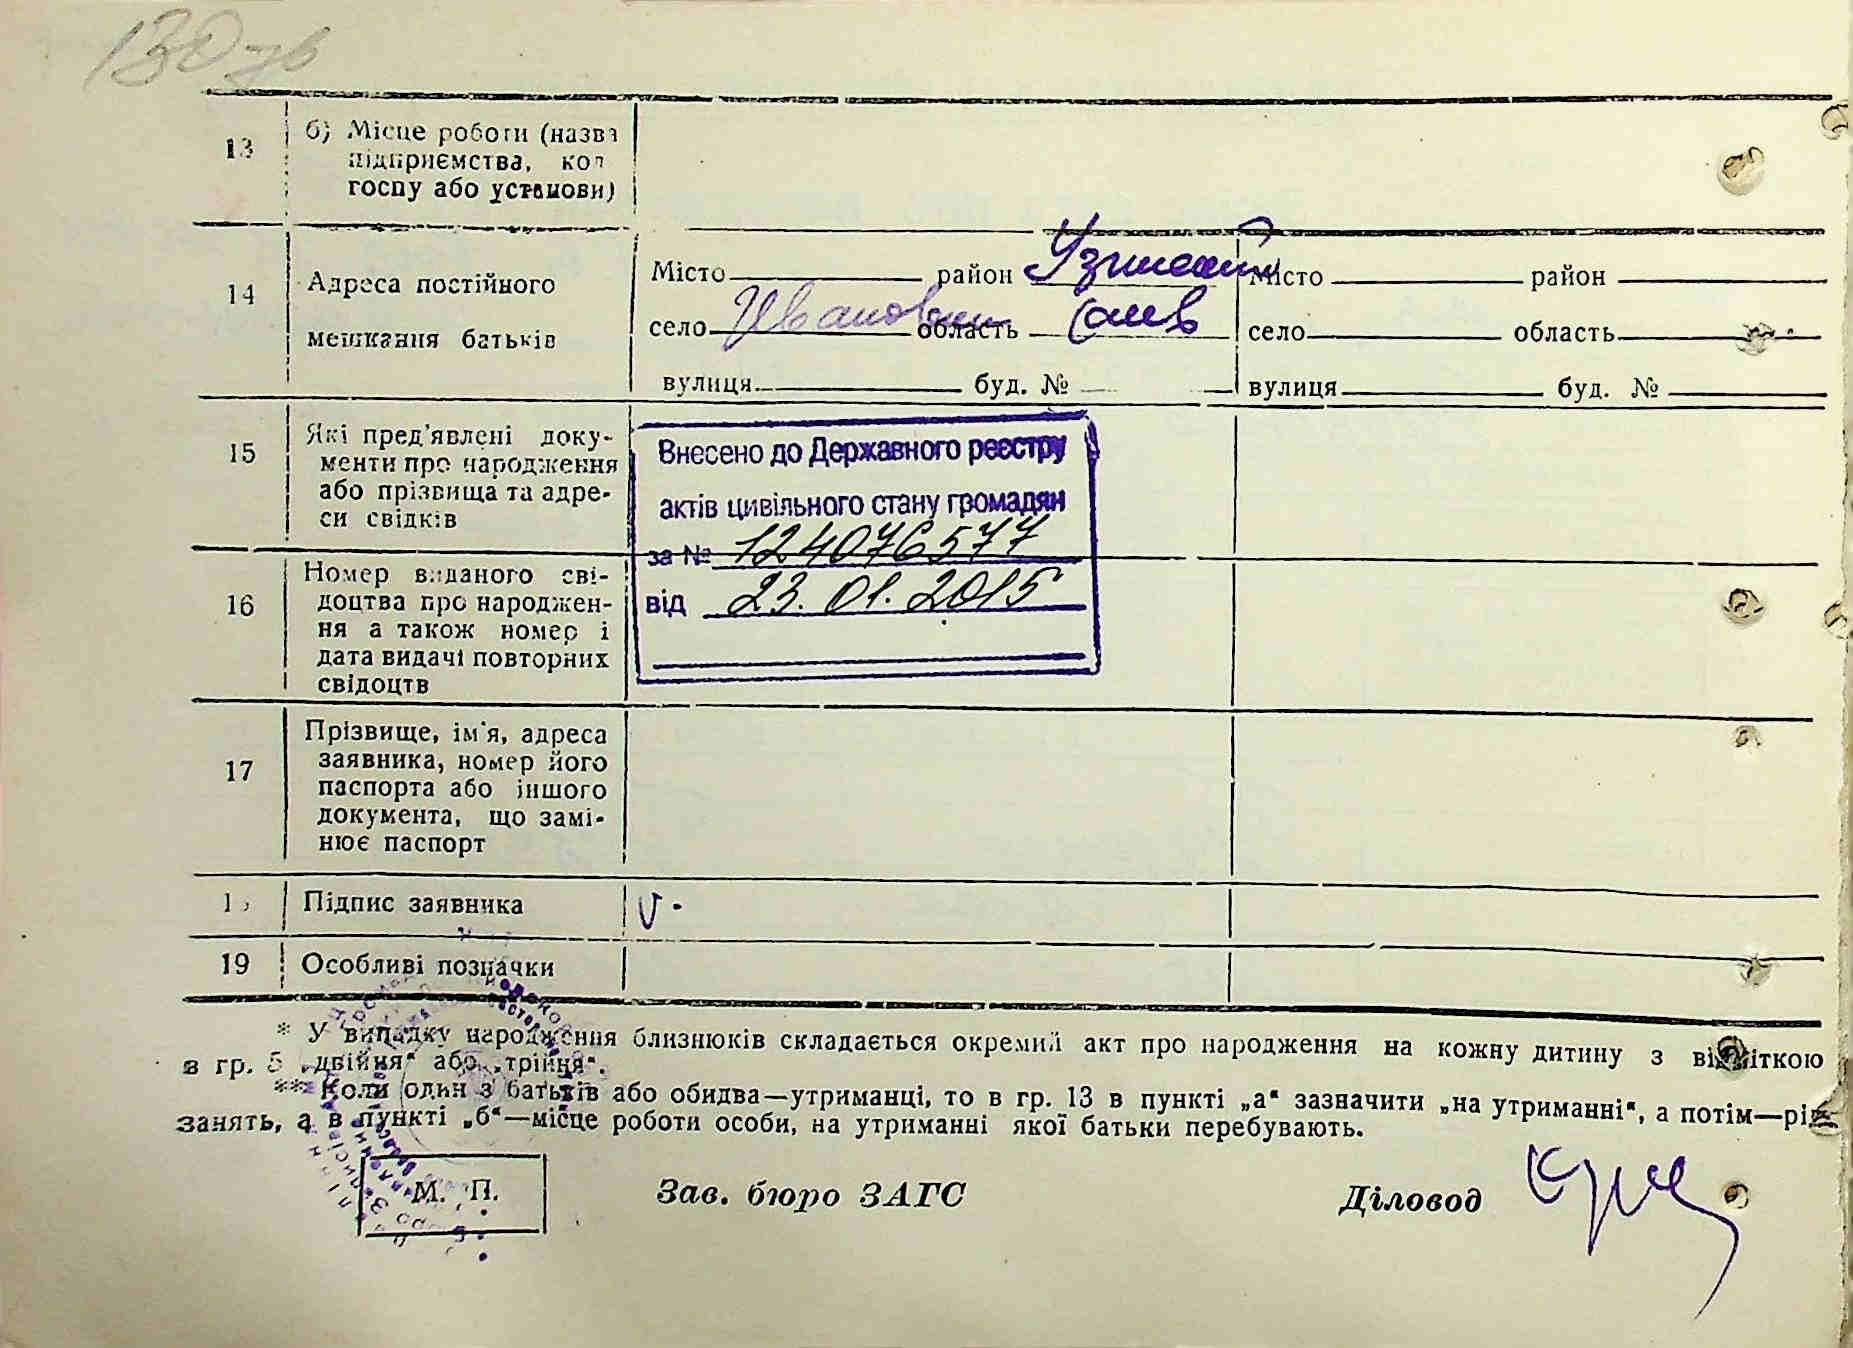 130 зв
13 б) Місце роботи (назва
підприємства, кол
госпу або установи)
14 Адреса постійного
мешкання батьків
Місто район
село область
вулиця буд. №
Місто район
село область
вулиця буд. №
15 Які пред'явлені доку-
менти про народження
або прізвища та адре-
си свідків
Внесено до Державного реєстру
актів цивільного стану громадян
за № 124076577
від 23.01.2015
16 Номер виданого сві-
доцтва про народжен-
ня а також номер і
дата видачі повторних
свідоцтв
17 Прізвище, ім'я, адреса
заявника, номер його
паспорта або іншого
документа, що замі-
нює паспорт
Підпис заявника
19 Особливі позначки
* У випадку народження близнюків складається окремий акт про народження на кожну дитину з відміткою
в гр. 5 „двійня“ або „трійня“.
** Коли один з батьків або обидва—утриманці, то в гр. 13 в пункті „а“ зазначити „на утриманні“, а потім—рід
занять, а в пункті „б“—місце роботи особи, на утриманні якої батьки перебувають.
М. П. Зав. бюро ЗАГС Діловод